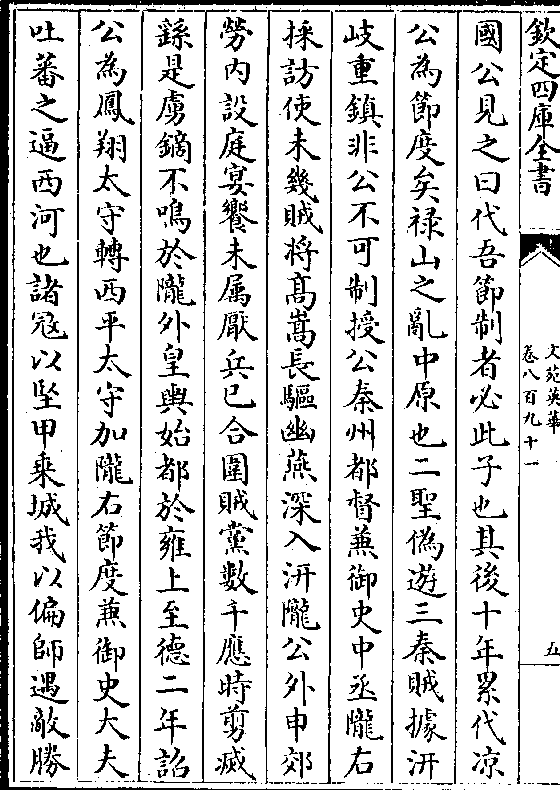 欽定四庫全書
文苑英華
卷八百九十一
五
國公見之曰代吾節制者必此子也其後十年累代凉
公為節度矣禄山之亂中原也二聖僞遊三秦賊據汧
岐重鎮非公不可制授公秦州都督兼御史中丞隴右
採訪使未幾賊将髙嵩長驅幽燕深入汧隴公外申郊
勞内設庭宴饗未属厭兵已合圍賊黨數千應時剪滅
繇是虜鏑不鳴於隴外皇輿始都於雍上至德二年詔
公為鳳翔太守轉西平太守加隴右節度兼御史大夫
吐蕃之逼西河也諸冦以堅甲乗城我以偏師遇敵勝